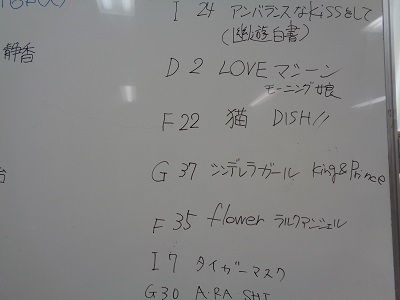 静香
I 24 アンバランスなKissをして
(幽遊白書)
D 2 LOVEマシーン
モーニング娘
F 22 猫 DISH//
台
G 37 シンデレラガール King&Prince
F 35 flower ラルクアンジェル
I 7 タイガーマスク
G30 A・RA SHI